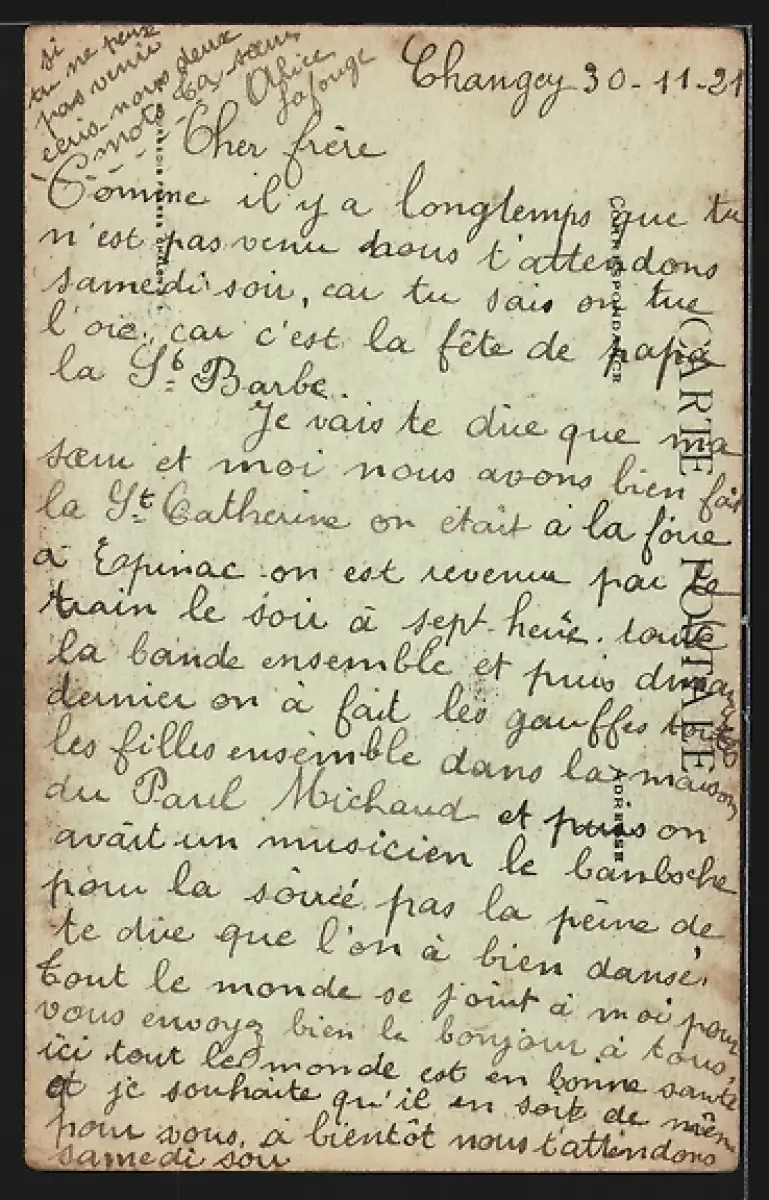 Changey 30-11-21
Cher frère
Comme il y a longtemps que tu
n'est pas venu nous t'attendons
samedi soir, car tu sais on tue
l'oie, car c'est la fête de papa
la Ste Barbe.
Je vais te dire que ma
sœur et moi nous avons bien fait
la St Catherine on était à la foire
a Epinac on est revenu par le
train le soir à sept heure. toute
la bande ensemble et puis dimanche
dernier on à fait les gauffes toutes
les filles ensemble dans la maison
du Paul Michaud et puis on
avait un musicien le bamboche
pour la soirée pas la peine de
te dire que l'on à bien dansé.
Tout le monde se joint à moi pour
vous envoyez bien le bonjour à tous,
ici tout le monde est en bonne santé
et je souhaite qu'il en soit de même
pour vous. a bientôt nous t'attendons
samedi soir
si
tu ne peux
pas venir
écris-nous deux
mots. Ta sœur
Alice
Lafouge
CARTE POSTALE
CORRESPONDANCE
ADRESSE